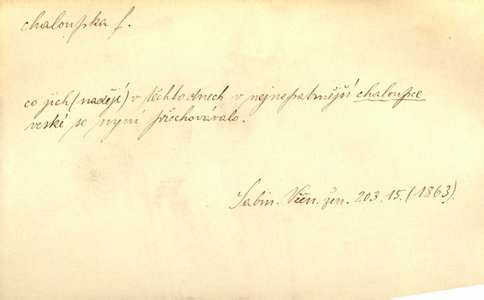 chaloupka f.
co jich (nadějí) v těchto dnech v nejnepatrnější chaloupce
veské se nyní přechovávalo.
Sabin. Věn. žen. 203. 15. (1863).